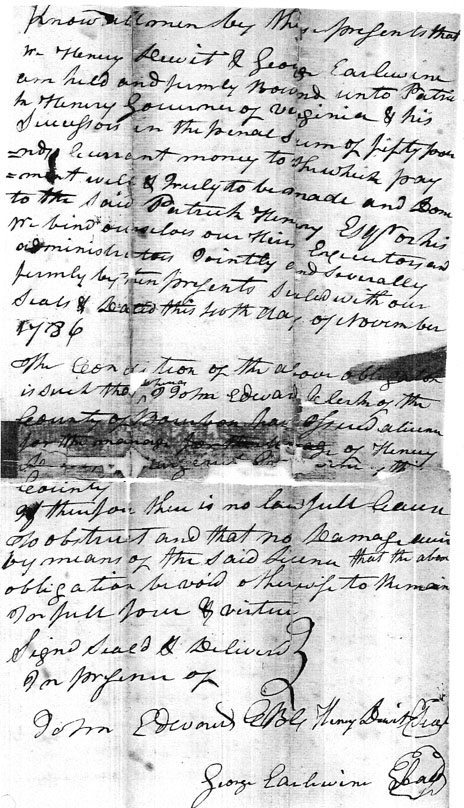 Know all men by these presents that
we Henry Dewit & George Earlewine
are held and firmly Bound unto Patri
k Henry Governer of Virginia & his
Successors in the penal Sum of fifty pou
=nds Currant money to the which pay
=ment well & Truly to be made and Don
to the Said Patrick Henry Esqr or his
We bind ourselves our Heirs Executors and
administrators Jointly and Severally
firmly by these presents Sealed with our
Seals & Dated this day of November
1786
The Condition of the above obligation
is such that whereas John Edward Clerk of the
County of Bourbon has Issued a licence
for the marriage of Henry
County
If therefore there is no lawfull Cause
To obstruct and that no Damage
by means of the Said licence that the above
obligation be void otherwise to Remain
In full force & virtue
Signd Seald & Deliverd
In presence of
John Edwards Henry Dewit Seal
George Earlewine Seal